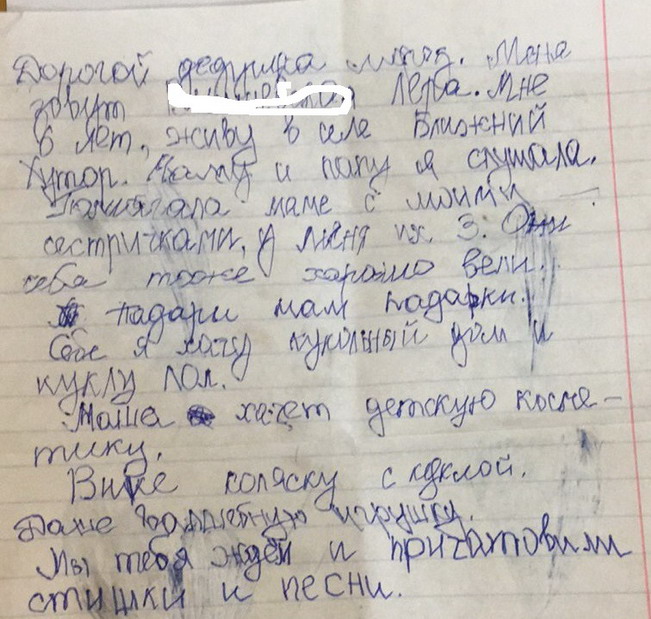 Дорогой дедушка мароз. Меня
зовут Лера. Мне
6 лет, живу в селе Ближний
Хутор. Маму и папу я слушала.
Памагала маме с моими
сестричками, у меня их 3. Они
себя тоже харошо вели.
падари нам падарки.
Себе я хачу кукольный дом и
куклу Лол.
Маша хачет детскую косме-
тику.
Вике коляску с куклой.
Даше игрушку.
Мы тебя ждём и пригатовили
стишки и песни.